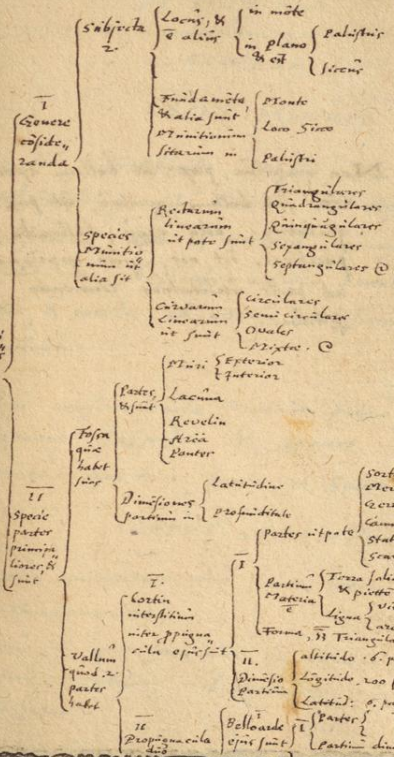 I
Genere
cõside,,
randa
Subjecta
2
Locus, &
ẽ alius
in mõte
in plano
& est
Palustris
siccus
Fundamẽta,
& alia sunt
Munitionum
sitarum in
Monte
Loco Sicco
Palustri
Species
Munitio
num ut
alia sit
Rectarum
linearum
ut pote sunt
Triangulares
Quadrangulares
Quinquãgulares
Sexangulares
Septangulares
Curvarum
Linearum
ut sunt
Circulares
Semicirculares
Ovales
Mixtæ
II
Specie
partes
principa
liores, &
sunt
Fossa
quæ
habet
suas
Partes,
& sunt
Muri
Exterior
Interior
Lacuna
Revelin
Area
Pontes
Dimẽsiones
partium in
Latitudine
Profunditate
Vallum
quod 2
partes
habet
I.
Cortin
interstitium
inter ppugna
cula ejus sunt
I
Partes ut pote
Partium
Materia
ẽ
Terra
Ligna
Forma,
Triangula
II.
Dimẽsio
Partium
altitudo 6. p
Lõgitudo 200
Latitud: 6. p
II
Propugnacula
duo
Belloarde
ejus sunt
I
Partes
Partium dim